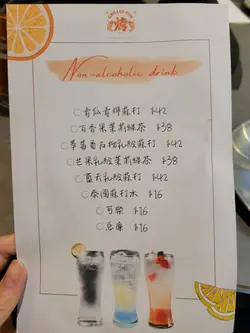 烤
Non-alcoholic drink
○青瓜青檸梳打 $42
○百香果茉莉綠茶 $38
○草莓番石榴乳酸梳打 $42
○芒果乳酸茉莉綠茶 $38
○藍天乳酸梳打 $42
○泰國梳打水 $16
○可樂 $16
○忌廉 $16